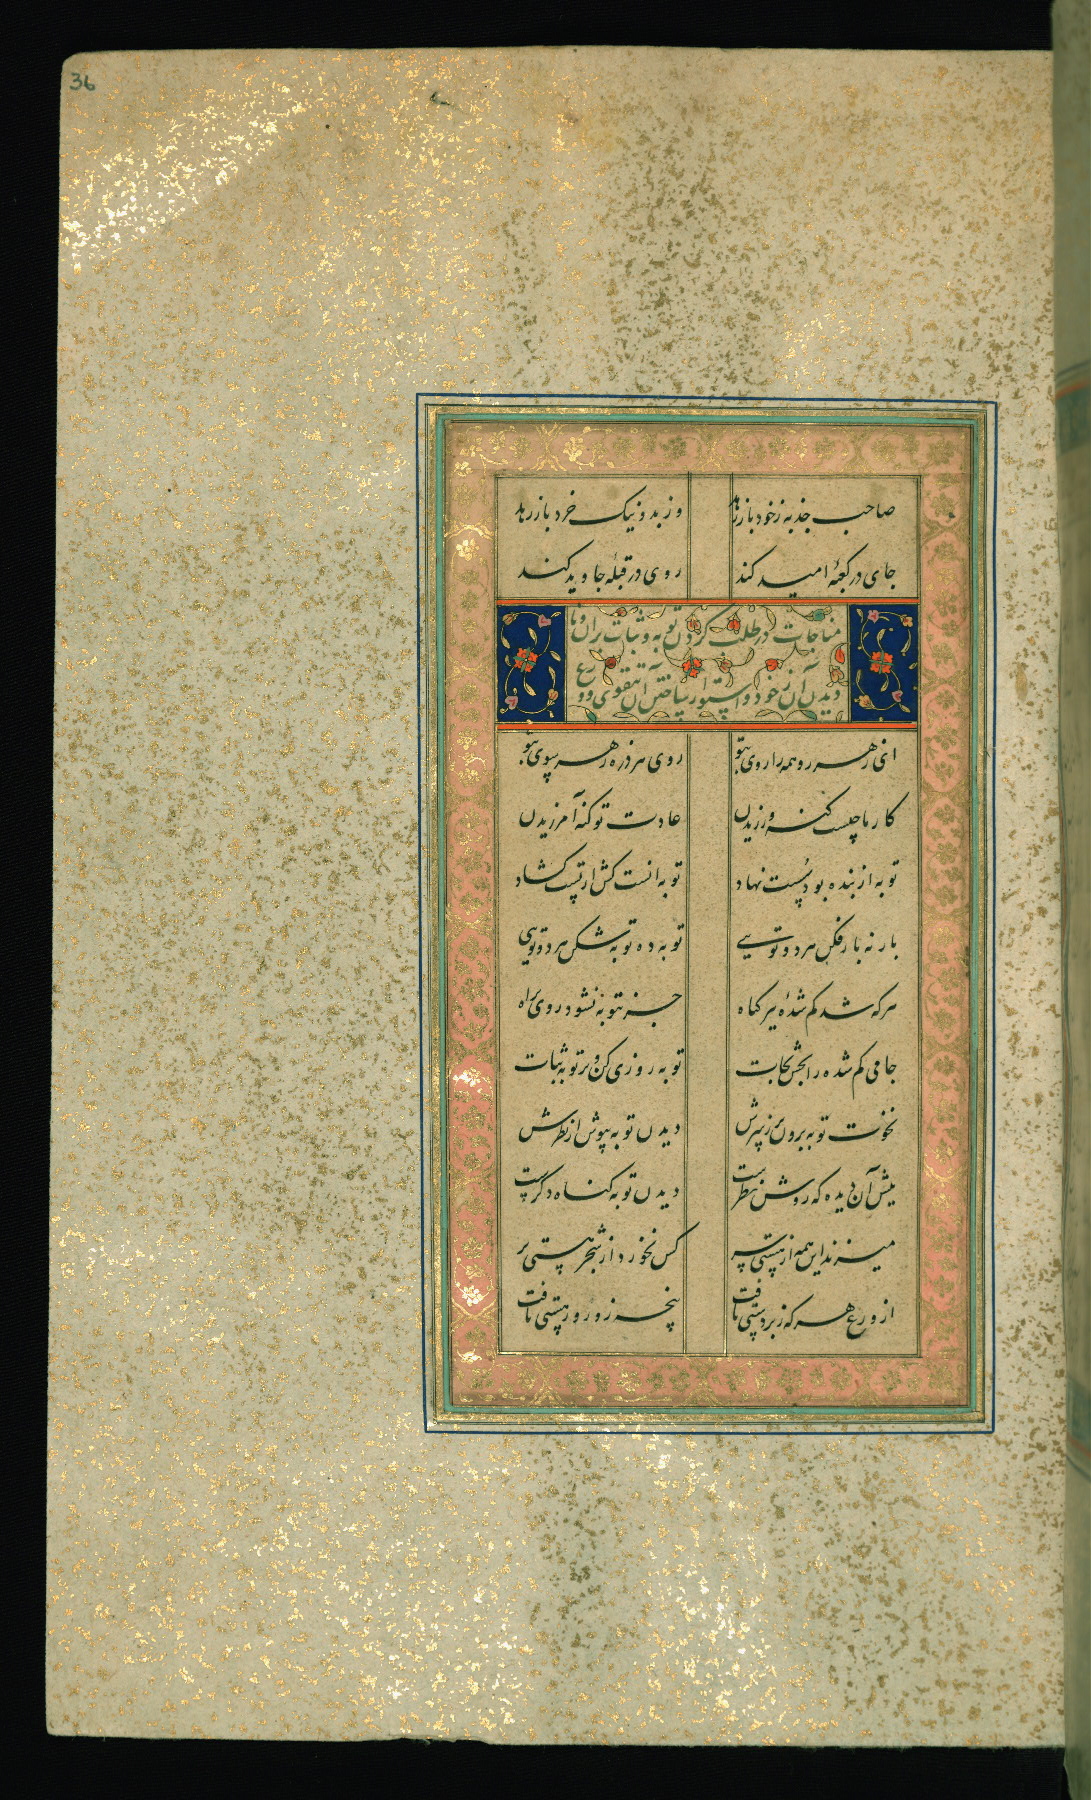 36
صاحب جذبه ز خود بازرهد وز بد و نیک خرد بازرهد
جای در کعبهٔ امید کند روی در قبلهٔ جاوید کند
مناجات در طلب کردن توبه و ثبات بر آن و نا
دیدن آن از خود و استوار ساختن آن بتقوی و ورع
ای ز هر رو همه را روی بتو روی هر ذره ز هر سوی بتو
کار ما چیست گنه ورزیدن عادت تو گنه آمرزیدن
توبه از بنده بود سست نهاد توبه آنست کش از تست گشاد
بارنه بارفکن هر دو تویی توبه ده توبه شکن هر دو تویی
هر که شد گم شدهٔ تیر گناه جز بتوبه نشود روی براه
جامی گم شده را بخش نجات توبه روزی کن و بر توبه ثبات
نخوت توبه برون بر ز سرش دیدن توبه بپوش از نظرش
پیش آن دیده که روشن نظرست دیدن توبه گناه دگرست
میزند این همه از هستی سر کس نخورد از شجر هستی بر
از ورع هر که زبردستی یافت پنجه زور ور هستی تافت